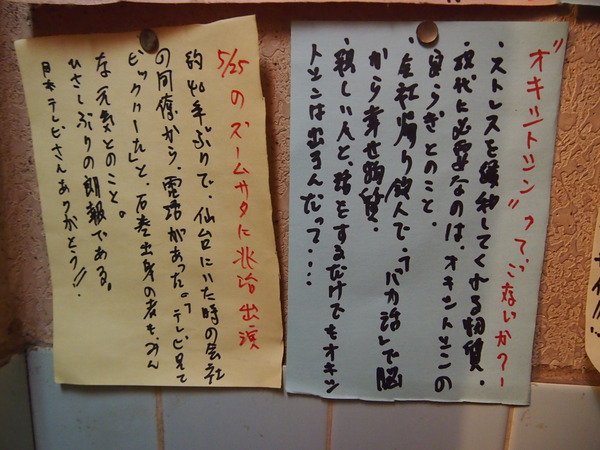 "オキシトシン"って、ごないか?ー
・ストレスを緩和してくれる物質。
・現代に必要なのは、オキシトシンの
安らぎとのこと
・会社帰り飲んで、「バカ話」で脳
から幸せ物質。
・親しい人と、話をするだけでもオキシ
トシンは出るんだって・・・・
5/25のズームサタに兆治出演
約40年ぶりで、仙台にいた時の会社
の同僚から、電話があった。「テレビ見て
ビックリーした」と、石巻出身の者も、みん
な元気とのこと。
ひさしぶりの朗報である。
日本テレビさんありがとう!!